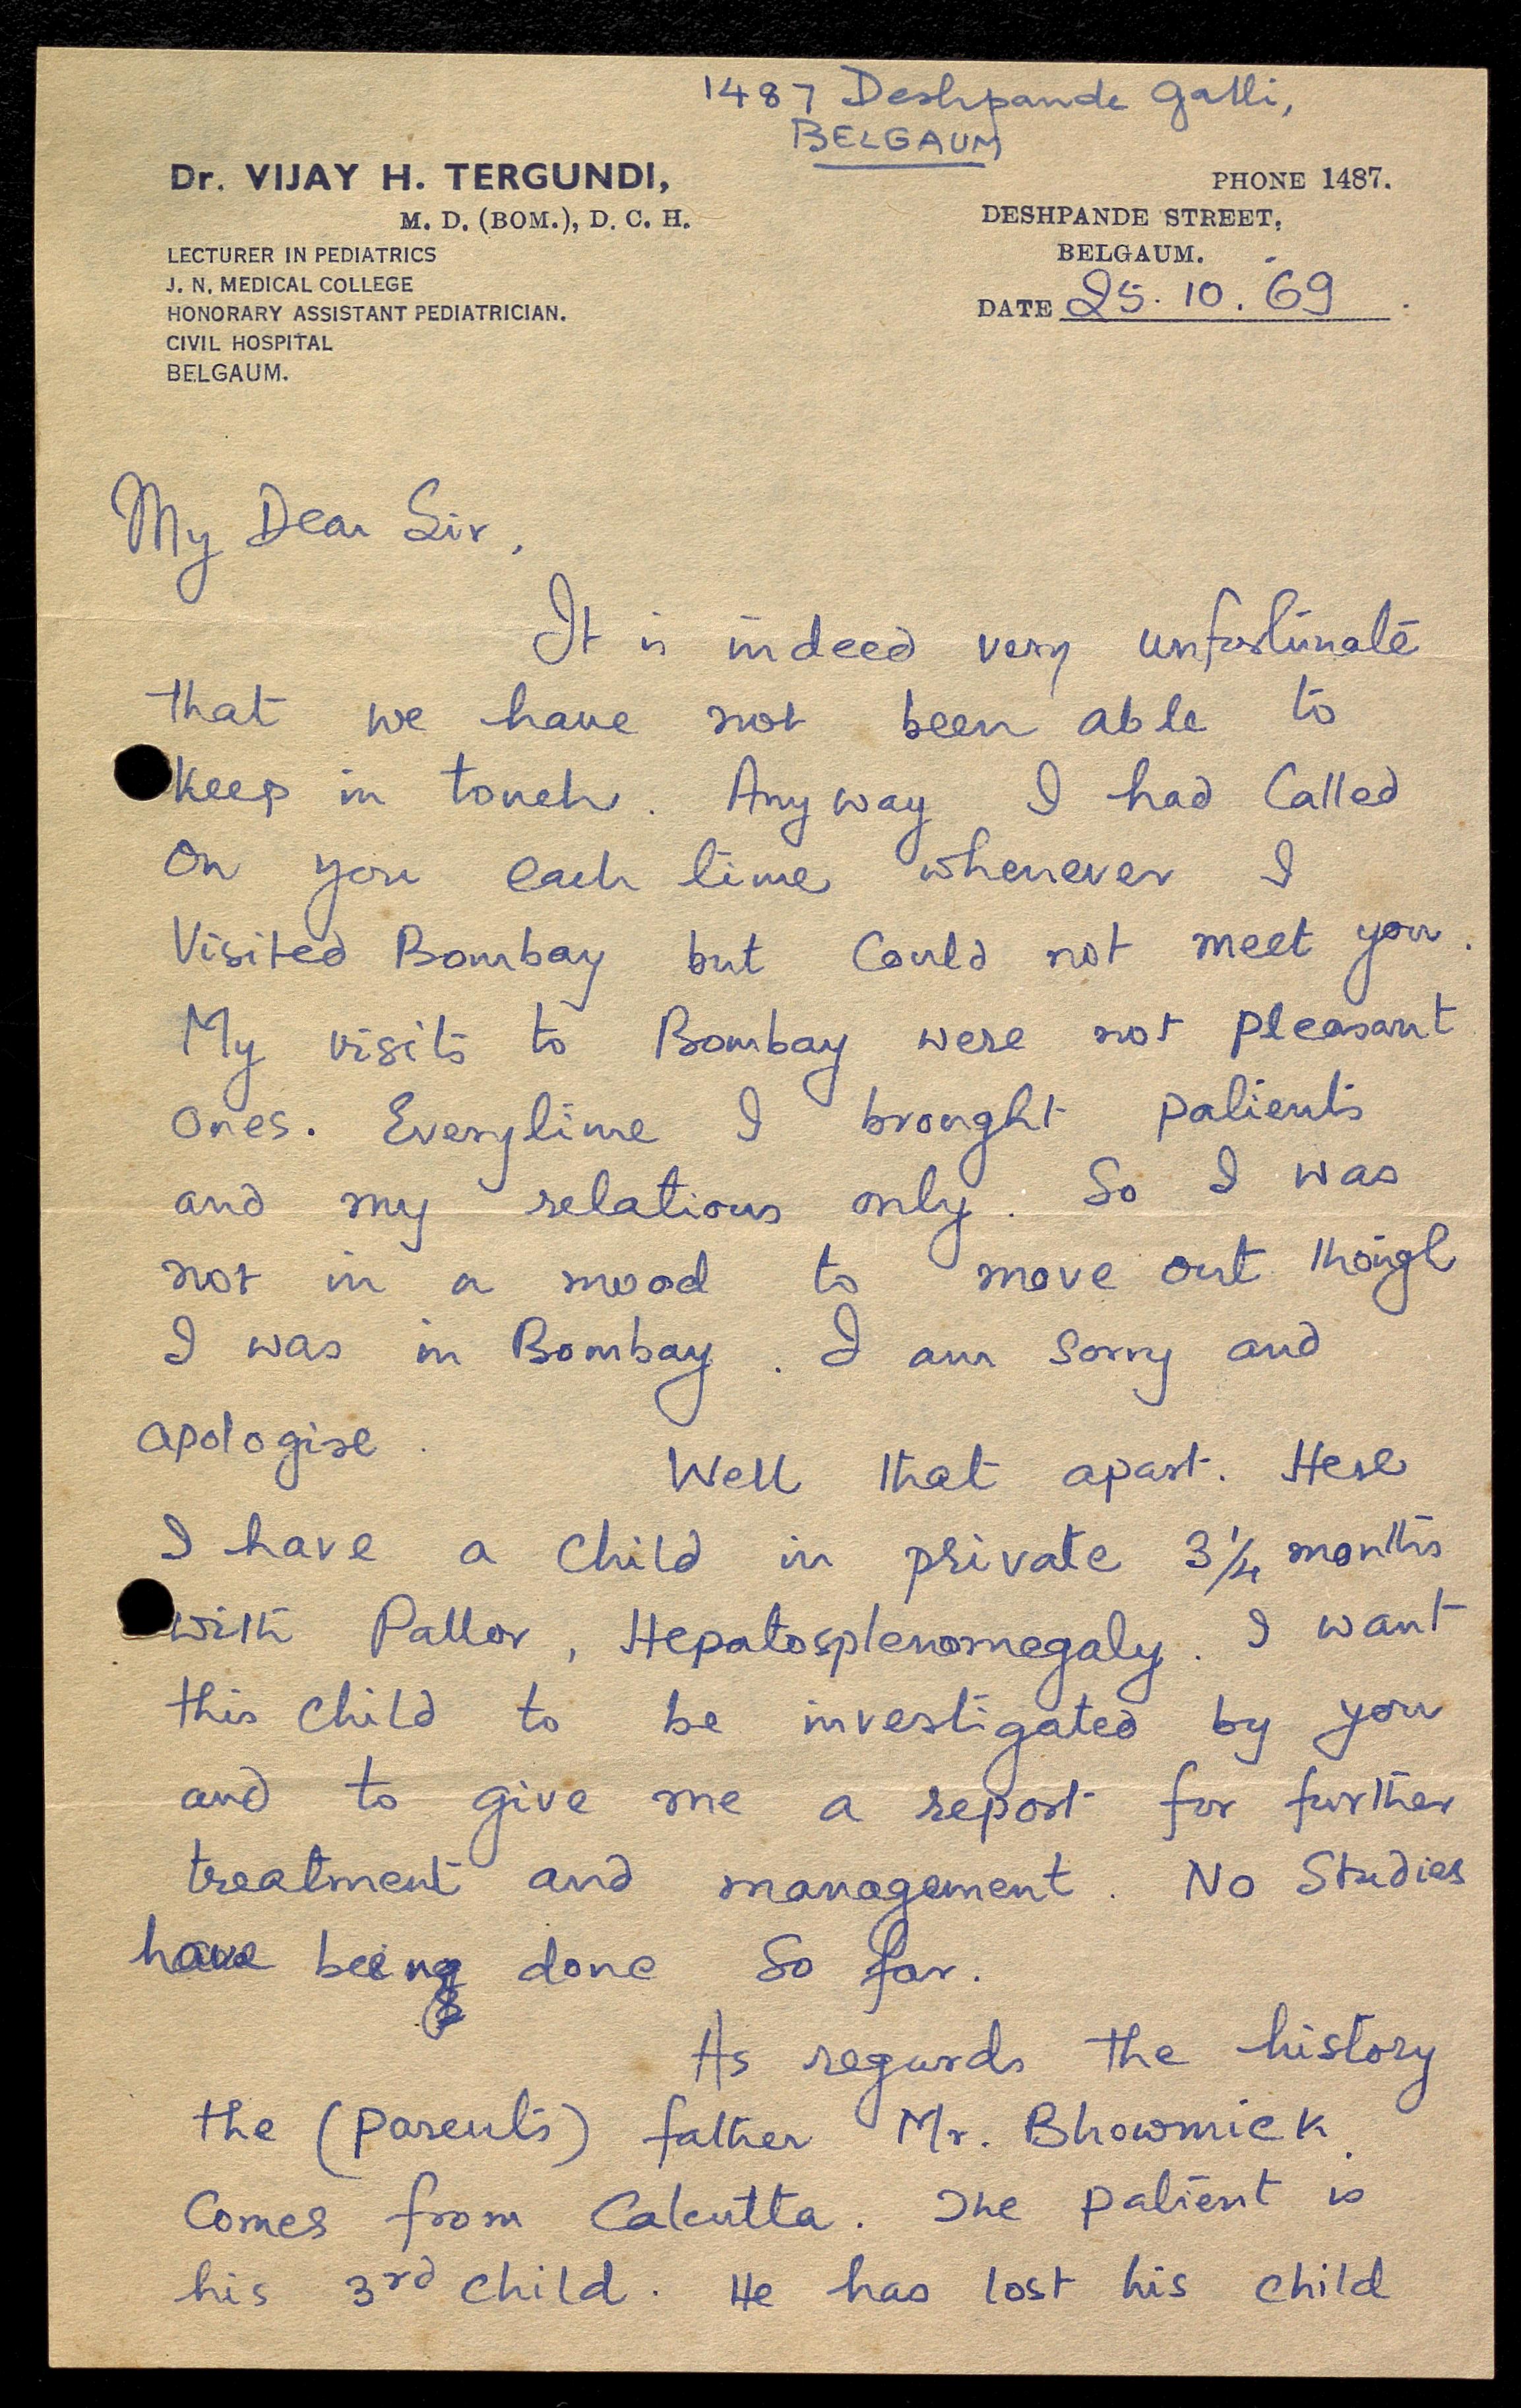 1487 Deshpande Galli,
BELGAUM
Dr. VIJAY H. TERGUNDI,
M. D. (BOM.), D. C. H.
LECTURER IN PEDIATRICS
J. N. MEDICAL COLLEGE
HONORARY ASSISTANT PEDIATRICIAN.
CIVIL HOSPITAL
BELGAUM.
PHONE 1487.
DESHPANDE STREET,
BELGAUM.
DATE 25. 10. 69
My Dear Sir,
It is indeed very unfortunate
that we have not been able to
keep in touch. Anyway I had Called
On you each time whenever I
Visited Bombay but Could not meet you.
My visits to Bombay were not pleasant
ones. Everytime I brought patients
and my relations only. So I was
not in a mood to move out though
I was in Bombay. I am sorry and
apologise.
Well that apart. Here
I have a child in private 3 1/4 months
with Pallor, Hepatosplenomegaly. I want
this child to be investigated by you
and to give me a report for further
treatment and management. No Studies
have being done So far.
As regards the history
the (parents) father Mr. Bhowmick
Comes from Calcutta. The patient is
his 3rd child. He has lost his child